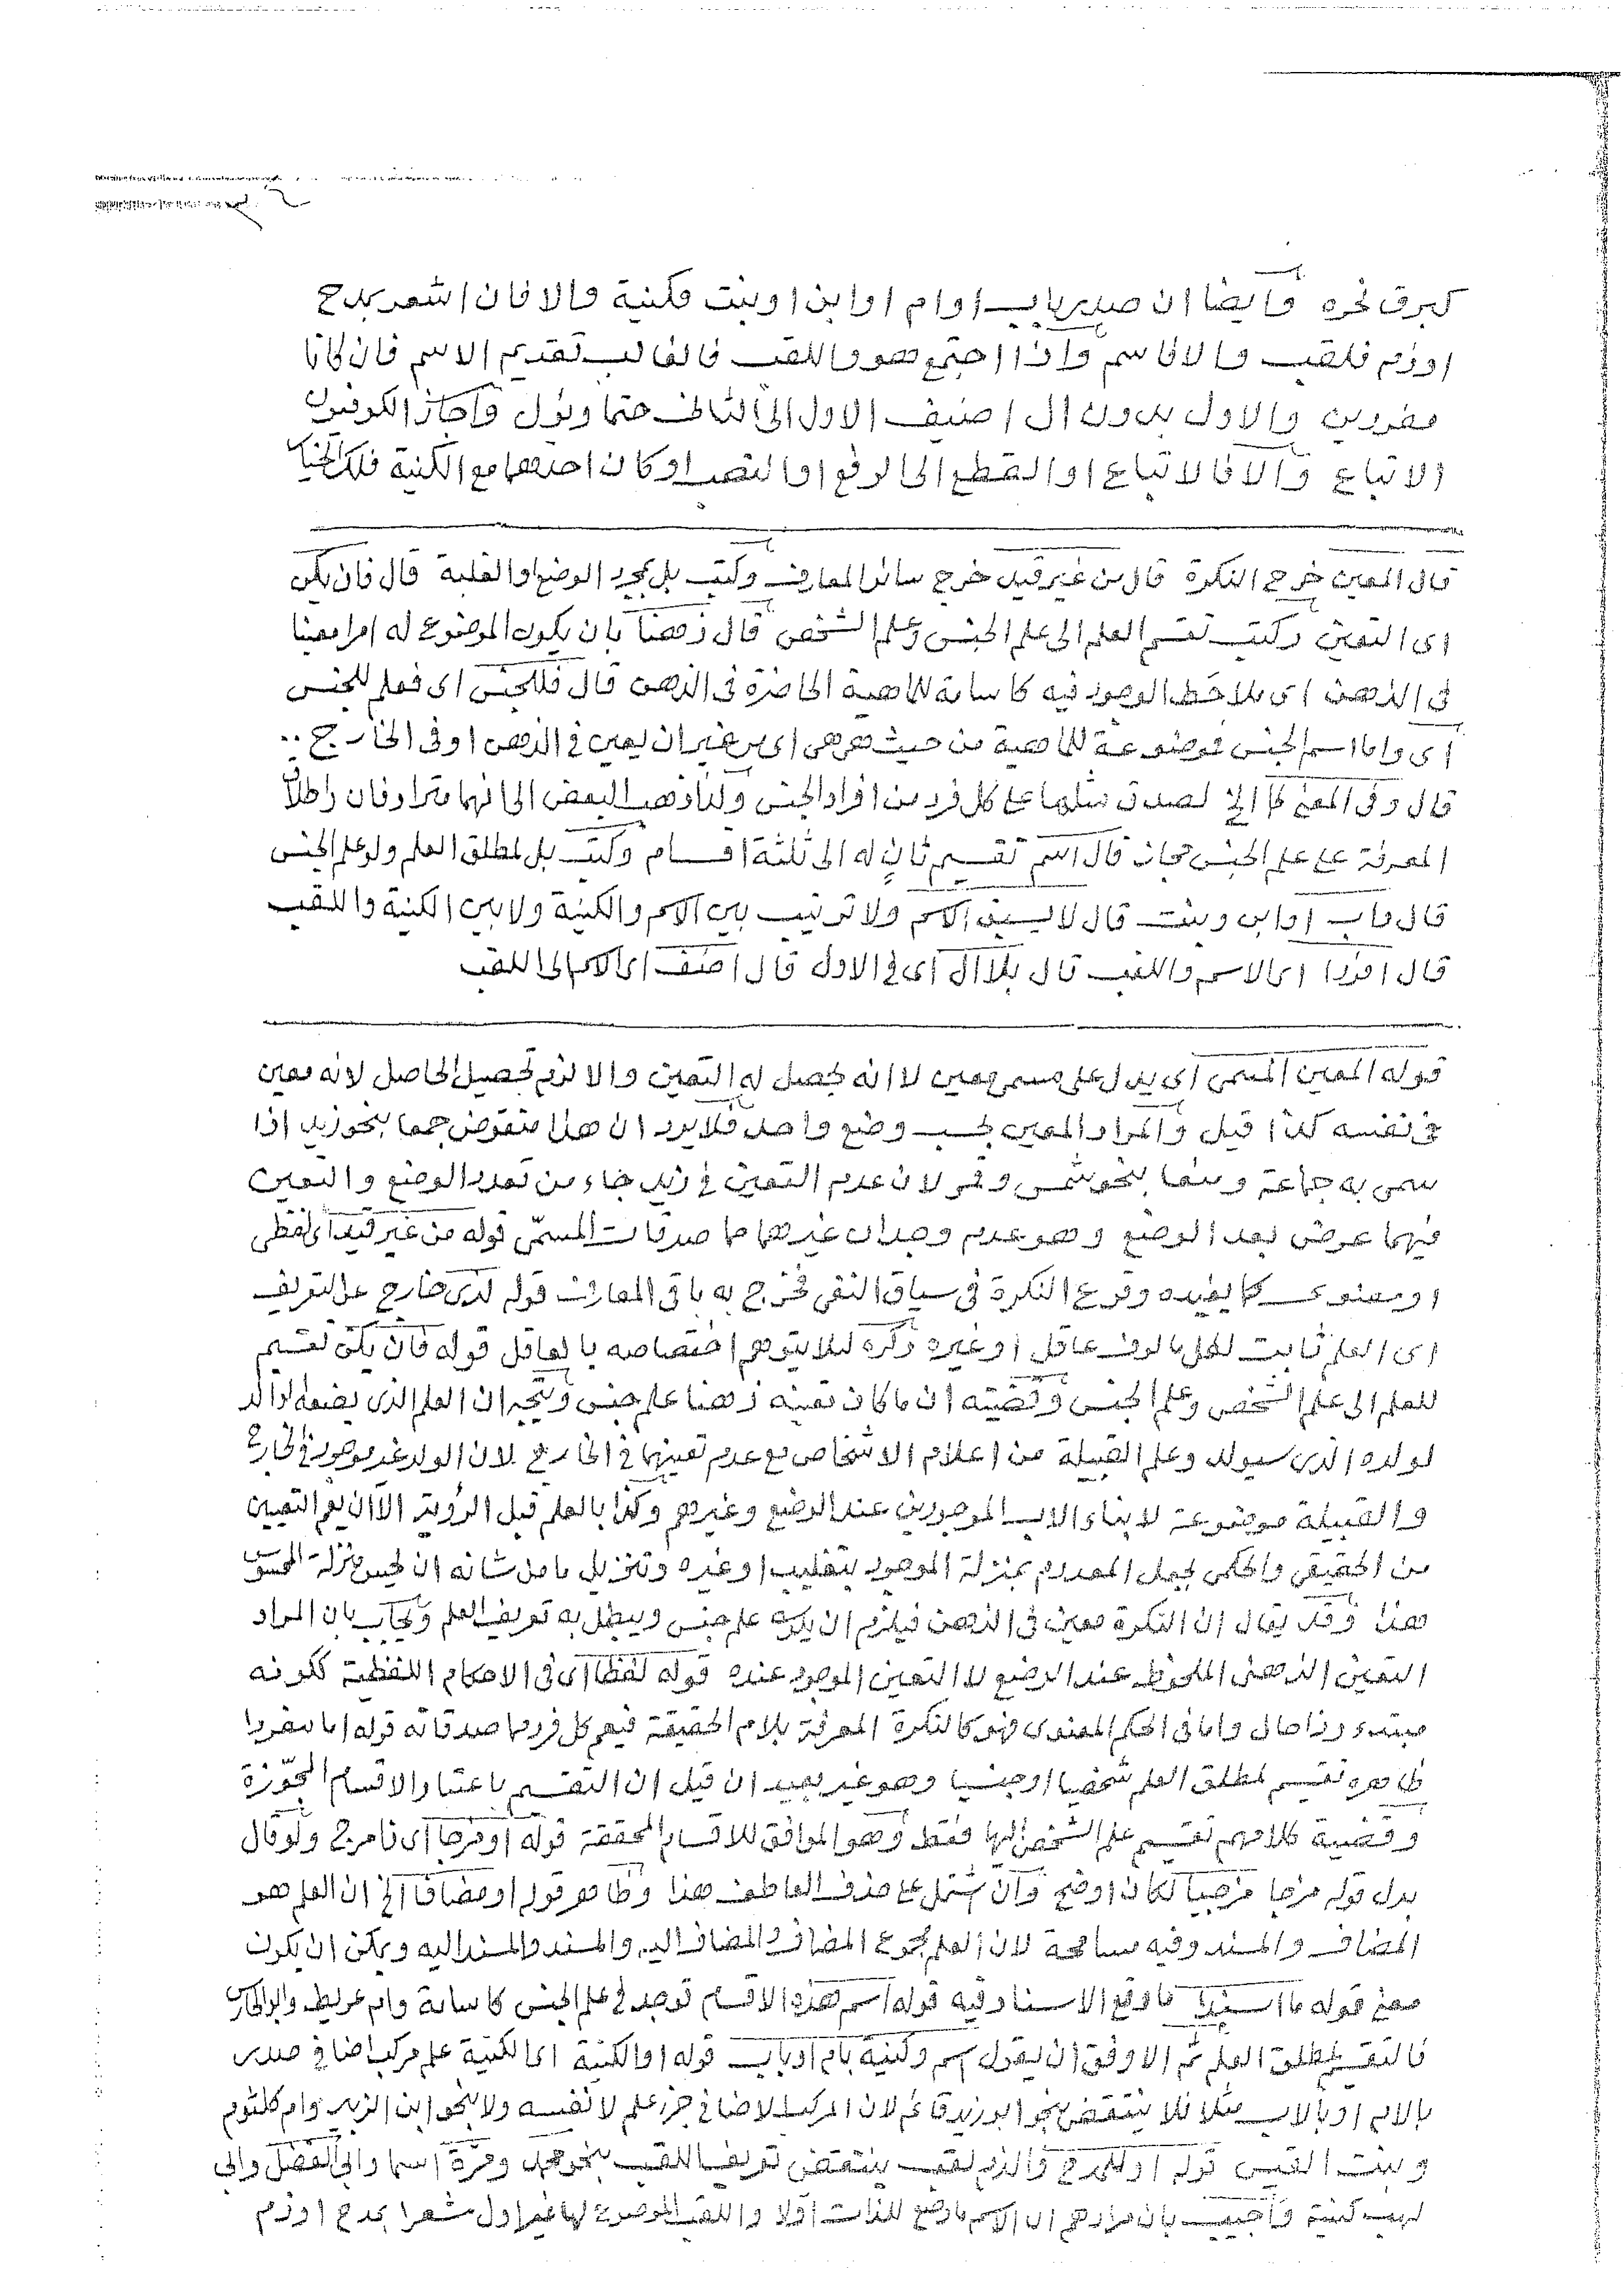 كبرق نحره وأيضا ان صدر باب او ام او ابن او بنت فكنية والا فان اشعر بمدح
او ذم فلقب والا فاسم واذا اجتمع هو واللقب فالغالب تقديم الاسم فان كانا
مفردين والاول بدون ال اضيف الاول الى الثانى حتما ويؤل واجاز الكوفيون
الاتباع والا فالاتباع او القطع الى الرفع او النصب او كان احدهما مع الكنية فلك الخيار
قال المعين خرج النكرة قال من غير قيد خرج سائر المعارف وكتب بل بمجرد الوضع او الغلبة قال فان يكن
اى التعين وكتب تقسيم العلم الى علم الجنس وعلم الشخص قال ذهنا بان يكون الموضوع له امرا معينا
فى الذهن اى يلاحظ الوجود فيه كاسامة للماهية الحاضرة فى الذهن قال فللجنس اى فعلم للجنس
اى واما اسم الجنس فموضوعة للماهية من حيث هى هى اى من غير ان يعين فى الذهن او فى الخارج
قال وفى المعنى كما الخ لصدق مثلها على كل فرد من افراد الجنس ولذا ذهب البعض الى انهما مترادفان واطلاق
المعرفة على علم الجنس مجاز قال اسم تقسيم ثانٍ له الى ثلثة اقسام وكتب بل لمطلق العلم ولو علم الجنس
قال فاب او ابن وبنت قال لا يسبق الاسم ولا ترتيب بين الاسم والكنية ولا بين الكنية واللقب
قال افردا اى الاسم واللقب قال بلا ال اى فى الاول قال اضف اى الاسم الى اللقب
قوله المعين المسمى اى يدل على مسمى معين لا انه يحصل له التعين والا لزم تحصيل الحاصل لانه معين
فى نفسه كذا قيل والمراد المعين بحسب وضع واحد فلا يرد ان هذا منقوض جمعا بنحو زيد اذا
سمى به جماعة ومنعا بنحو شمس وقمر لان عدم التعين فى زيد جاء من تعدد الوضع والتعين
فيهما عرض بعد الوضع وهو عدم وجدان غيرهما مما صدقات المسمّى قوله من غير قيد اى لفظى
او معنوى كما يفيده وقوع النكرة فى سياق النفى فخرج به باقى المعارف قوله لذى خارج عن التعريف
اى العلم ثابت لكل مألوف عاقل او غيره ذكره لئلا يتوهم اختصاصه بالعاقل قوله فان يكن تقسيم
للعلم الى علم الشخص وعلم الجنس وقضيته ان ما كان تعينه ذهنا علم جنس ويتجه ان العلم الذى يضعه الوالد
لولده الذى سيولد وعلم القبيلة من اعلام الاشخاص مع عدم تعينهما فى الخارج لان الولد غير موجود فى الخارج
والقبيلة موضوعة لابناء الاب الموجودين عند الوضع وغيرهم وكذا بالعلم قبل الرؤية الا ان يعم التعيين
من الحقيقى والحكمى بجعل المعدوم بمنزلة الموجود بتغليب او غيره وتنزيل ما من شانه ان يحس منزلة المحسوس
هذا وقد يقال ان النكرة معين فى الذهن فيلزم ان يكون علم جنس ويبطل به تعريف العلم ويجاب بان المراد
التعين الذهنى الملحوظ عند الوضع لا التعين الموجود عنده قوله لفظا اى فى الاحكام اللفظية ككونه
مبتدء وذا حال واما فى الحكم المعنوى فهو كالنكرة المعرفة بلام الحقيقة فيعم كل فرد مما صدقاته قوله اما مفردا
ظاهره تقسيم لمطلق العلم شخصيا او جنسيا وهو غير بعيد ان قيل ان التقسيم باعتبار الاقسام المجوّزة
وقضية كلامهم تقسيم علم الشخص اليها فقط وهو الموافق للاقسام المحققة قوله او مزجا اى ذا مزج ولو قال
بدل قوله مزجا مزجيا لكان اوضح وان اشتمل على حذف العاطف هذا وظاهر قوله او مضافا الخ ان العلم هو
المضاف والمسند وفيه مسامحة لان العلم مجموع المضاف والمضاف اليه والمسند والمسند اليه ويمكن ان يكون
معنى قوله ما اسندا ما وقع الاسناد فيه قوله اسم هذه الاقسام توجد فى علم الجنس كاسامة وام عريط وابو الحارث
فالتقسيم لمطلق العلم ثم الاوفق ان يقول اسم وكنية بام او باب قوله او الكنية اى الكنية علم مركب اضافى صدره
بالام او بالاب مثلا فلا ينتقض بنحو ابو زيد قائم لان المركب الاضافى جزء علم لا نفسه ولا بنحو ابن الزبير وام كلثوم
وبنت القيس قوله او للمدح والذم لقب ينتقض تعريف اللقب بنحو محمد ومرّة اسما وابى الفضل وابى
لهب كنية واجيب بان مرادهم ان الاسم ما وضع للذات اوّلا واللقب الموضوع لها غير اول مشعرا بمدح او ذم